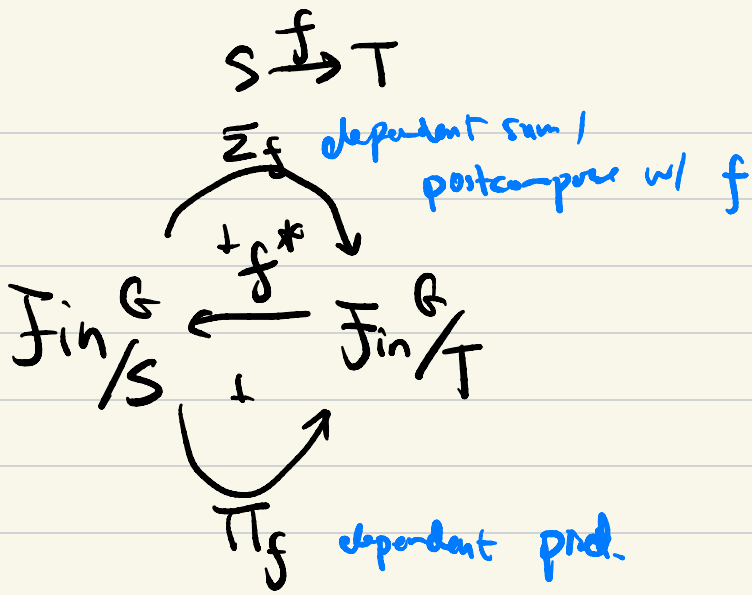 S →f T
Σ_f dependent sum /
postcompose w/ f
⊥ f*
Fin^G/S ← Fin^G/T
⊥
Π_f dependent prod.